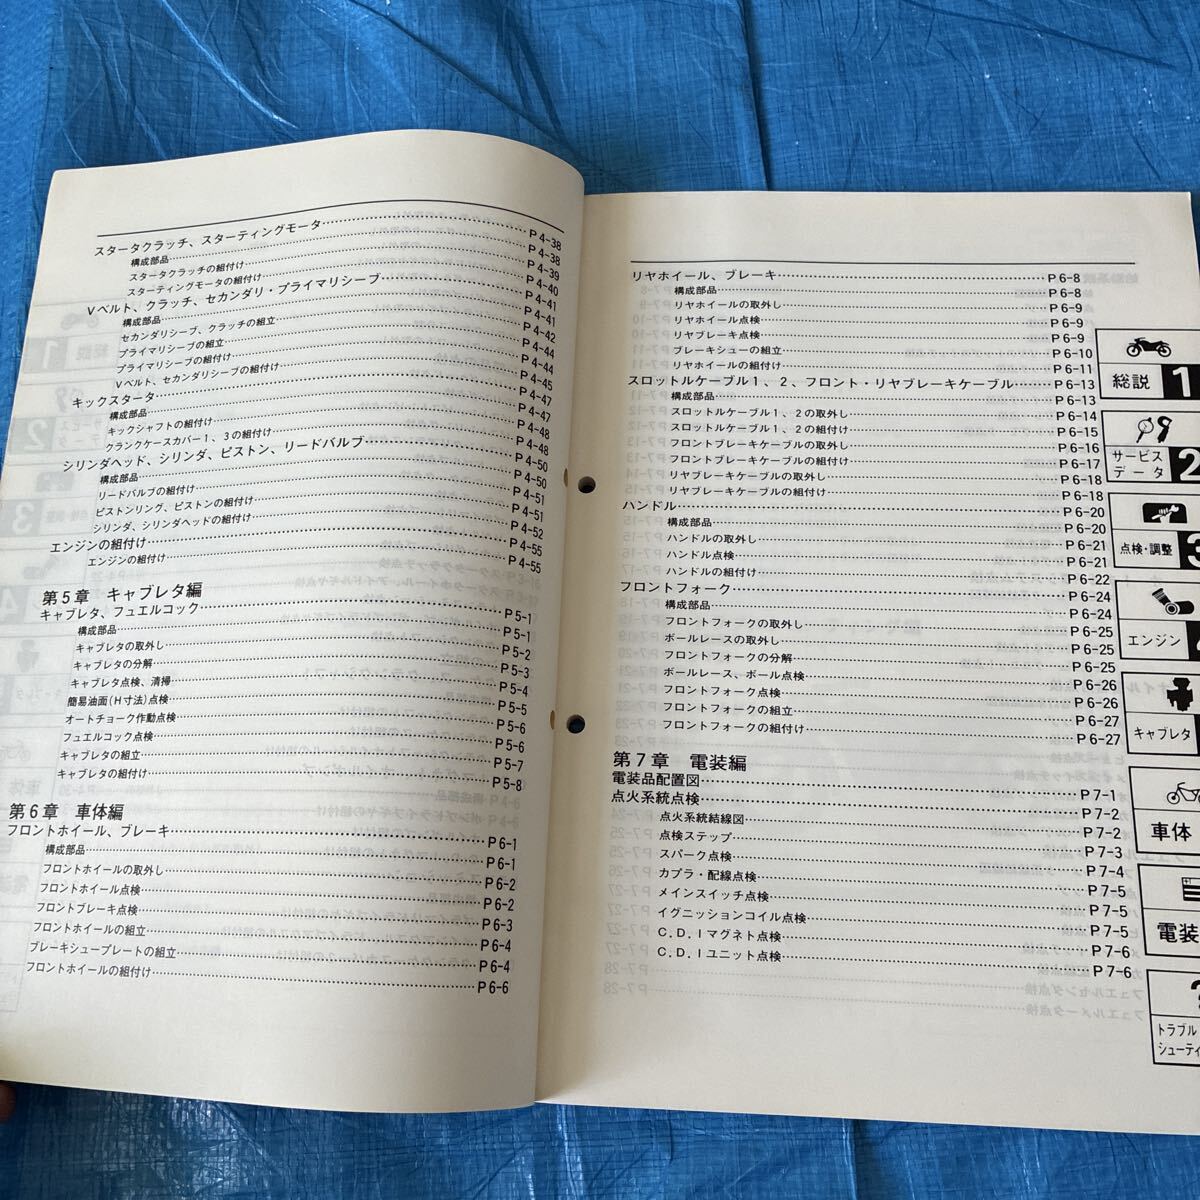 スタータクラッチ、スターティングモータ P 4-38
構成部品 P 4-38
スタータクラッチの組付け P 4-39
スターティングモータの組付け P 4-40
Vベルト、クラッチ、セカンダリ・プライマリシーブ P 4-41
構成部品 P 4-41
セカンダリシーブ、クラッチの組立 P 4-42
プライマリシーブの組立 P 4-44
プライマリシーブの組付け P 4-44
Vベルト、セカンダリシーブの組付け P 4-45
キックスタータ P 4-47
構成部品 P 4-47
キックシャフトの組付け P 4-48
クランクケースカバー1、3の組付け P 4-48
シリンダヘッド、シリンダ、ピストン、リードバルブ P 4-50
構成部品 P 4-50
リードバルブの組付け P 4-51
ピストンリング、ピストンの組付け P 4-51
シリンダ、シリンダヘッドの組付け P 4-52
エンジンの組付け P 4-55
エンジンの組付け P 4-55
第5章 キャブレタ編
キャブレタ、フュエルコック P 5-1
構成部品 P 5-1
キャブレタの取外し P 5-2
キャブレタの分解 P 5-3
キャブレタ点検、清掃 P 5-4
簡易油面(H寸法)点検 P 5-5
オートチョーク作動点検 P 5-6
フュエルコック点検 P 5-6
キャブレタの組立 P 5-7
キャブレタの組付け P 5-8
第6章 車体編
フロントホイール、ブレーキ P 6-1
構成部品 P 6-1
フロントホイールの取外し P 6-2
フロントホイール点検 P 6-2
フロントブレーキ点検 P 6-3
フロントホイールの組立 P 6-4
ブレーキシュープレートの組立 P 6-4
フロントホイールの組付け P 6-6
リヤホイール、ブレーキ P 6-8
構成部品 P 6-8
リヤホイールの取外し P 6-9
リヤホイール点検 P 6-9
リヤブレーキ点検 P 6-9
ブレーキシューの組立 P 6-10
リヤホイールの組付け P 6-11
スロットルケーブル1、2、フロント・リヤブレーキケーブル P 6-13
構成部品 P 6-13
スロットルケーブル1、2の取外し P 6-14
スロットルケーブル1、2の組付け P 6-15
フロントブレーキケーブルの取外し P 6-16
フロントブレーキケーブルの組付け P 6-17
リヤブレーキケーブルの取外し P 6-18
リヤブレーキケーブルの組付け P 6-18
ハンドル P 6-20
構成部品 P 6-20
ハンドルの取外し P 6-21
ハンドル点検 P 6-21
ハンドルの組付け P 6-22
フロントフォーク P 6-24
構成部品 P 6-24
フロントフォークの取外し P 6-25
ボールレースの取外し P 6-25
フロントフォークの分解 P 6-25
ボールレース、ボール点検 P 6-26
フロントフォーク点検 P 6-26
フロントフォークの組立 P 6-27
フロントフォークの組付け P 6-27
第7章 電装編
電装品配置図 P 7-1
点火系統点検 P 7-2
点火系統結線図 P 7-2
点検ステップ P 7-3
スパーク点検 P 7-4
カプラ・配線点検 P 7-5
メインスイッチ点検 P 7-5
イグニッションコイル点検 P 7-5
C.D.Iマグネト点検 P 7-6
C.D.Iユニット点検 P 7-6
総説 1
サービス
データ 2
点検・調整 3
エンジン
キャブレタ
車体
電装
トラブル
シューティ